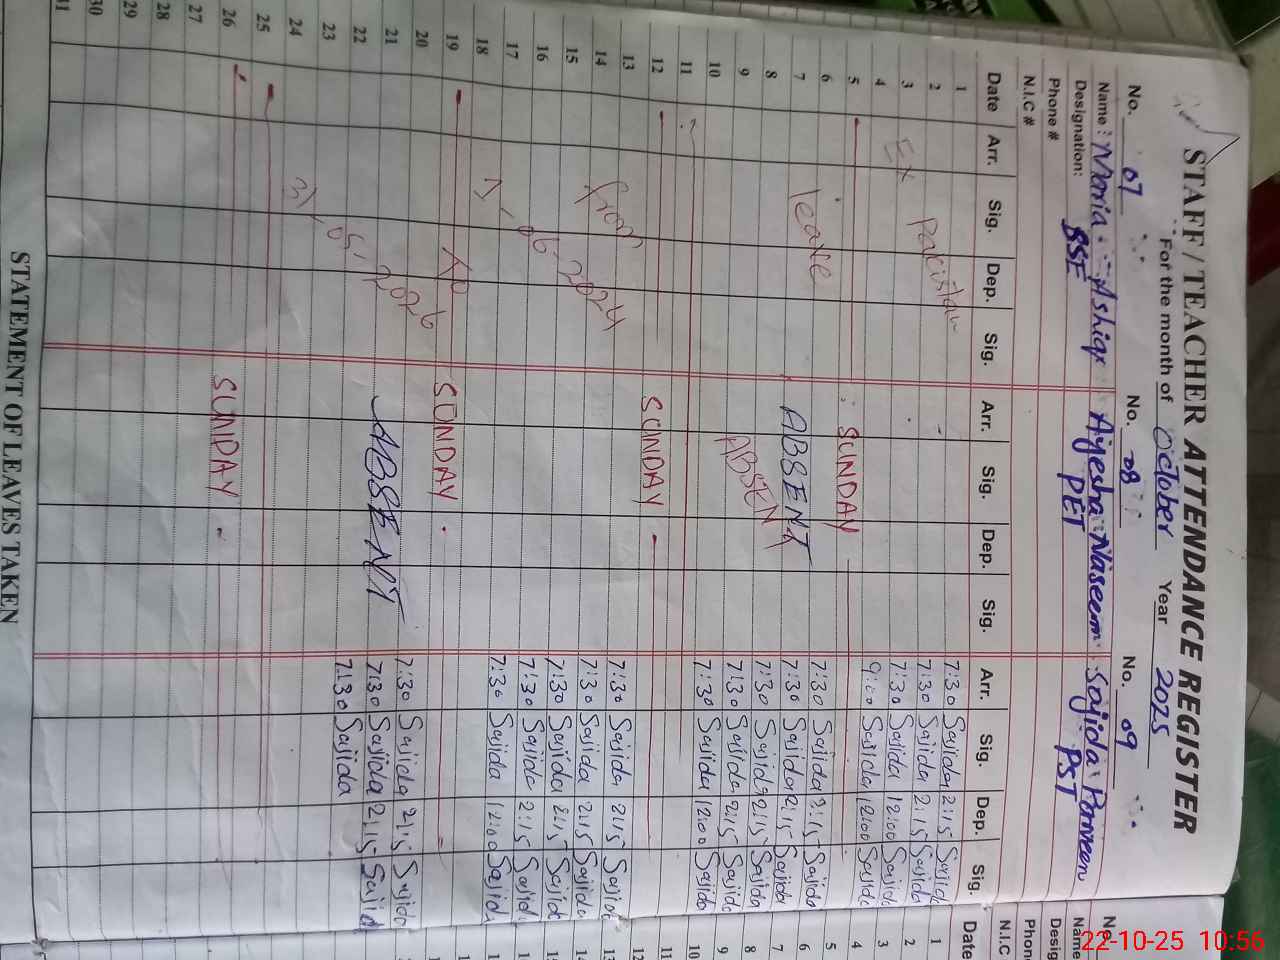 STAFF/TEACHER ATTENDANCE REGISTER
For the month of October Year 2025
No. 07 No. 08 No. 09
Name: Maria Ashiq Ayesha Naseem Sajida Parveen
Designation: SSE PET PST
Phone #
N.I.C #
Date Arr. Sig. Dep. Sig. Arr. Sig. Dep. Sig. Arr. Sig. Dep. Sig.
1 7:30 Sajida 2:15 Sajida
2 Pakistan 7:30 Sajida 2:15 Sajida
3 Ex 7:30 Sajida 12:00 Sajida
4 9:00 Sajida 12:00 Sajida
5 SUNDAY
6 leave 7:30 Sajida 2:15 Sajida
7 ABSENT 7:30 Sajida 2:15 Sajida
8 7:30 Sajida 2:15 Sajida
9 ABSEN 7:30 Sajida 2:15 Sajida
10 7:30 Sajida 12:00 Sajida
11
12 SUNDAY
13 from 7:30 Sajida 2:15 Sajida
14 7:30 Sajida 2:15 Sajida
15 7:30 Sajida 2:15 Sajida
16 1-06-2024 7:30 Sajida 2:15 Sajida
17 7:30 Sajida 12:00 Sajida
18
19 To SUNDAY
20 7:30 Sajida 2:15 Sajida
21 ABSENT 7:30 Sajida 2:15 Sajida
22 31-05-2026 7:30 Sajida
23
24
25
26 SUNDAY
27
28
29
30
31
STATEMENT OF LEAVES TAKEN
22-10-25 10:56